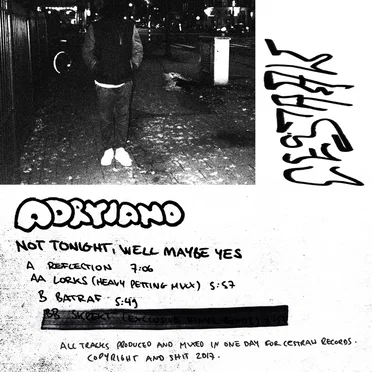 ADRYIANO
NOT TONIGHT, WELL MAYBE YES
A REFLECTION 7:06
AA LORKS (HEAVY PETTING MIXX) 5:57
B BATRAF 5:49
BB
ALL TRACKS PRODUCED AND MIXED IN ONE DAY FOR CESTRALL RECORDS.
COPYRIGHT AND SHIT 2017.